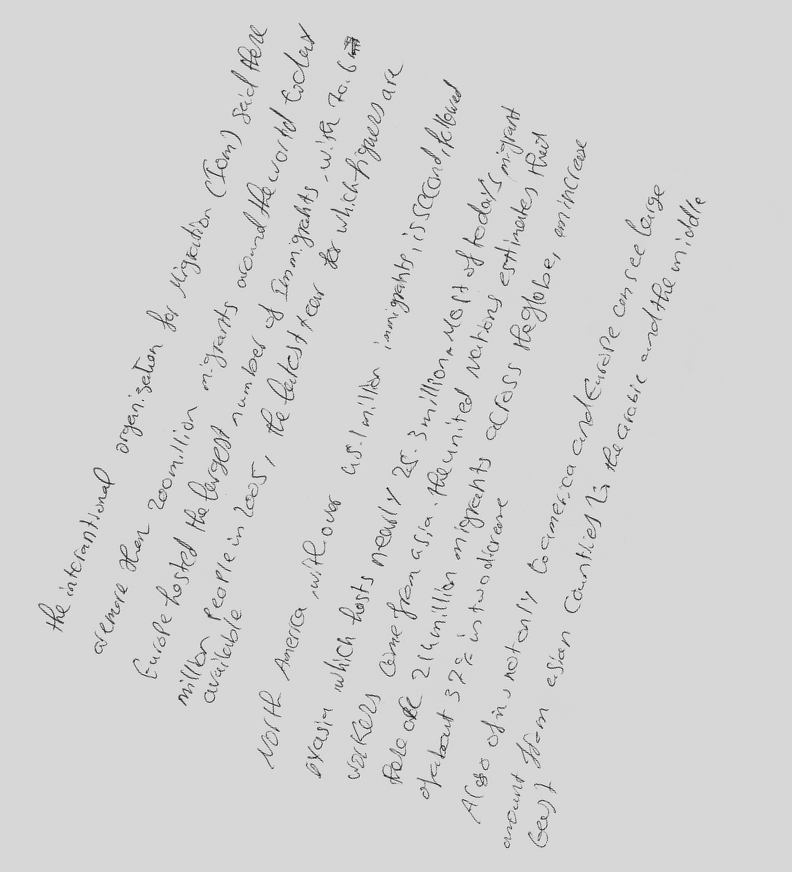 the interantional organization for Migration (Iom) said there
aremore then 200million migrants around the world today
Europe hosted the largest number of Immigrants, with 70.6
million People in 2005, the latest year for which figuers are
available
North America, with over 45.1million immigrants, is second, followed
by asia which hosts nearly 25.3 million. Most of today's migrant
workers come from asia. the united Nations estimates that
there are 214million migrants across the globe, an increase
of about 37% in two
Also not only to america and Europe can see large
amount from asian countries to the arabic and the middle
east